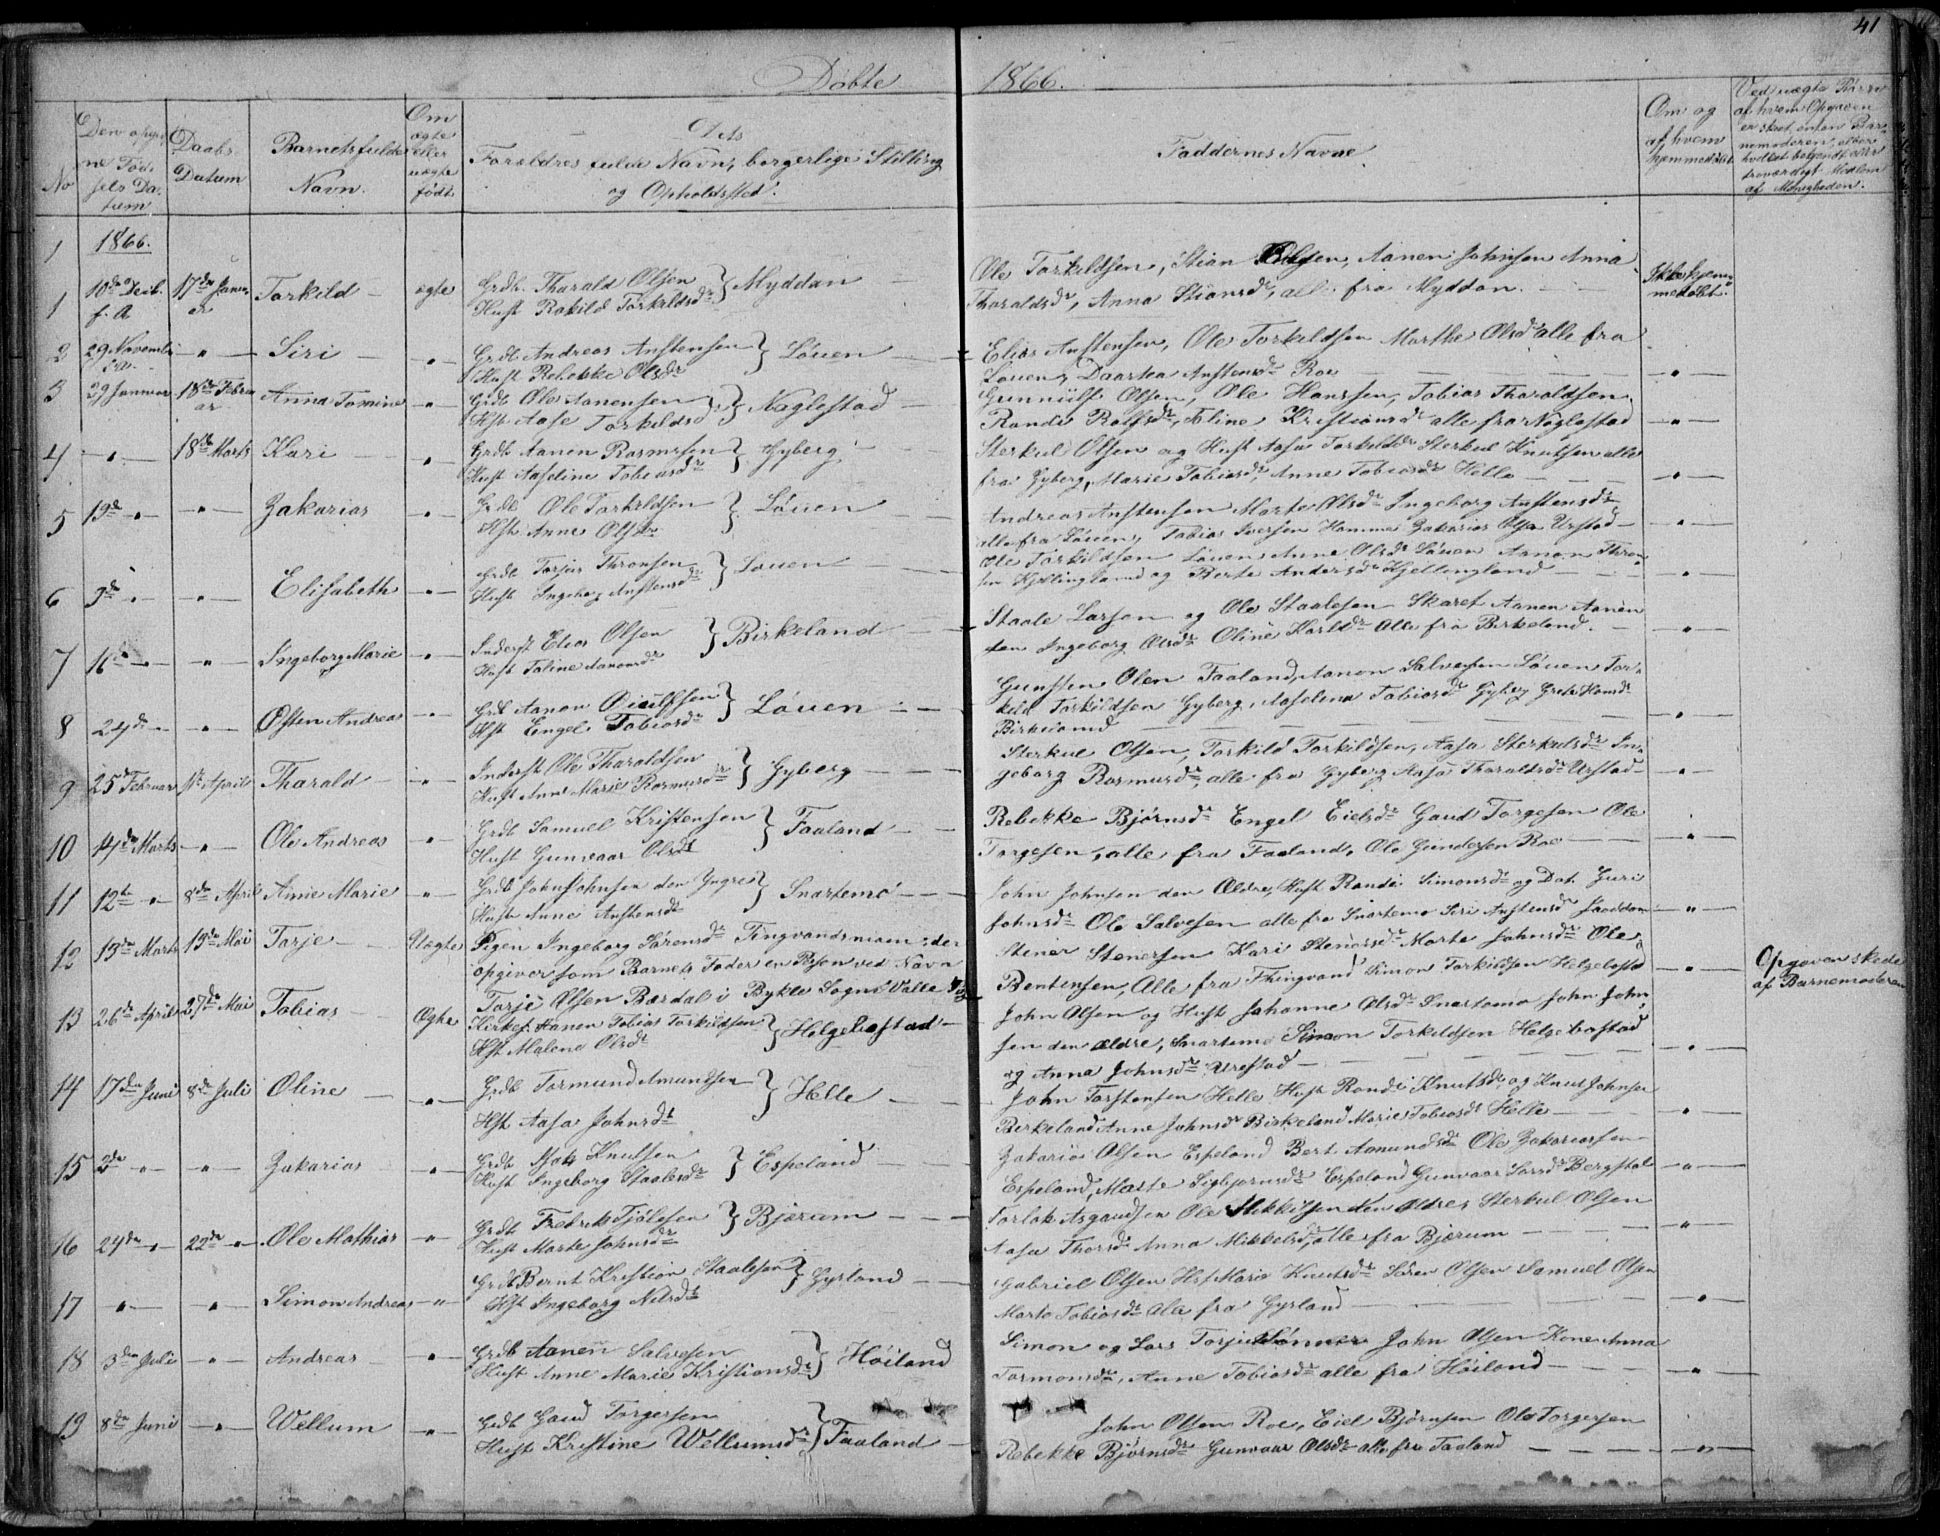 41
Døbte 1866.
No
Den opgivne Fødsels Datum
Daabs Datum
Barnets fulde Navn.
Om ægte eller uægte født
Dets Forældres fulde Navn, borgerlige Stilling og Opholdssted.
Faddernes Navne.
Om og af hvem hjemmedøbt
1 1866.
1 10de Decb. f. A 17de Januar Torkild — ægte Grdb. Tharald Olsen Hust Rakild Torkildsdr } Myddan — Ole Torkildsen, Stian Olsen, Aanen Johnsen Anna
Tharaldsdr, Anna Stiansdr, alle fra Myddan. — Ikke hjemmedøbt.
2 29 Novembr " — Siri — " Grdb Andreas Anstensen Hust Rebekke Olsdr } Løuen — Elias Anstensen, Ole Torkildsen Marthe Olsdr alle fra
Løuen, Daartea Anstensdr Roe — "
3 29 Januar 18de Februar Anna Tomine " Grdb Ole Aanensen Hst Aase Torkildsd } Naglestad — Gunnulf Olsen, Ole Hanssen, Tobias Tharaldsen
Randi Rolfsdr, Eline Kristiansdr alle fra Naglestad — " —
4 " 18de Marts Kari — " Grdb Aanen Rasmusen Hust Aaseline Tobiasdr } Gyberg — Sterkul Olsen og Hust Aasa Torkildsdr Sterkul Knutsen alle
fra Gyberg, Marie Tobiasdr, Anne Tobiasdr Helle — "
5 19de " " Zakarias " Grdb Ole Torkildsen Hst Anne Olsdr } Løuen — Andreas Anstensen Marte Olsdr Ingeborg Anstensdr
alle fra Løuen, Tobias Iversen Homme Zakarias Olsen Urstad — "
6 3de " " Elisabeth " Grdb Torjus Thronsen Hust Ingeborg Anstensdr } Løuen — Ole Torkildsen Løuen Anne Olsdr Løuen Aanon Thron
sen Kjellingland og Berte Andersdr Kjellingland — "
7 16de " " Ingeborg Marie " Inderst Elias Olsen Hust Taline Aanensdr } Birkeland — Staale Larsen og Ole Staalesen Skaret Aanen Aanen
sen Ingeborg Olsdr Oline Karlsdr Alle fra Birkeland. — "
8 24de " " Østen Andreas " Grdb Aanon Hst Engel Tobiasdr } Løuen — Gunsten Olsen Faaland, Aanon Salvesen Løuen Tor
kild Torkildsen Gyberg, Aaselena Tobiasdr Gyberg Grete Hansdr
Birkeland — "
9 25de Februar 1ste April Tharald " Inderst Ole Tharaldsen Hust Anne Marie Rasmusdr } Gyberg — Sterkul Olsen, Torkild Torkildsen, Aasa Sterkulsdr In
geborg Rasmusdr, alle fra Gyberg Aasa Tharaldsdr Urstad — "
10 14de Marts " Ole Andreas " Grdb Samuel Kristensen Hust Gunvaar Olsdr } Faaland — Rebekke Bjørnsdr Engel Eielsdr Gaud Torgesen Ole
Torgesen, alle fra Faaland, Ole Gundersen Roe — "
11 12te " 8de April Anne Marie " Grdb John Johnsen den Yngre Hust Anne Anstensdr } Snartemo — John Johnsen den Ældre, Hust Randi Simonsdr og Dat. Guri
Johnsdr Ole Salvesen alle fra Snartemo Siri Anstensd — "
12 13de Marts 19de Mai Torje — Uægte Pigen Ingeborg Sørensdr Tingvandsmoen, der
opgiver som Barnets Fader en Person ved Navn
Torje Olsen Bærdal i Bykle Sogn Valle
Stener Stenersen Kari Stenersdr Marte Johnsdr Ole
Bentensen, Alle fra Thingvand Simon Torkildsen Helgebostad — " Opgaven skede af Barnemoderen
13 26de April 27de Mai Tobias — Ægte Kirkes. Aanen Tobias Torkildsen Hst Malene Olsdr } Helgebostad — John Olsen og Hust Johanne Olsdr Snartemo John John
sen den ældre, Snartemo Simon Torkildsen Helgebostad
og Anna Johnsdr Urestad — "
14 17de Juni 8de Juli Oline — " Grdb Tormund Amundsen Hst Aasa Johnsdr } Helle — John Torstensen Helle, Hust Randi Knutsdr og Knut Johnsen
Birkeland Anne Johnsdr Birkeland Marie Tobiasdr Helle — "
15 2de " " Zakarias " Grdb Knutsen Hust Ingeborg Staalesdr } Espeland — Zakarias Olsen Espeland Bert Aamundsdr Ole Zakariassen
Espeland, Marte Sigbjørnsdr Espeland Gunvaar Larsdr Bergstøl — "
16 24de " 22de " Ole Mathias " Grdb Fredrik Tjølesen Hust Marte Johnsdr } Bjærum — Torlak Asgaudsen Ole Mikkelsen den Ældres Sterkul Olsen
Aasa Thorsdr Anna Mikkelsd, alle fra Bjærum — "
17 " " Simon Andreas " Grdb Bernt Kristian Staalesen Hst Ingeborg Nilsdr } Gysland — Gabriel Olsen Hst Marie Knutsdr Søren Olsen Samuel Olsen
Marte Tobiasdr Alle fra Gysland — "
18 3de Juli " Andreas " Grdb Aanen Salvesen Hust Anne Marie Kristiansdr } Høiland Simon og Lars Torjussønner John Olsen Kone Anna
Tormonsdr, Anne Tobiasdr alle fra Høiland — "
19 8de Juni " Wellum " Grdb Gaud Torgersen Hust Kristine Wellumsdr } Faaland — John Olsen Roe, Eiel Bjørnsen Ole Torgersen
Rebekke Bjørnsdr Gunvaar Olsdr alle fra Faaland — "